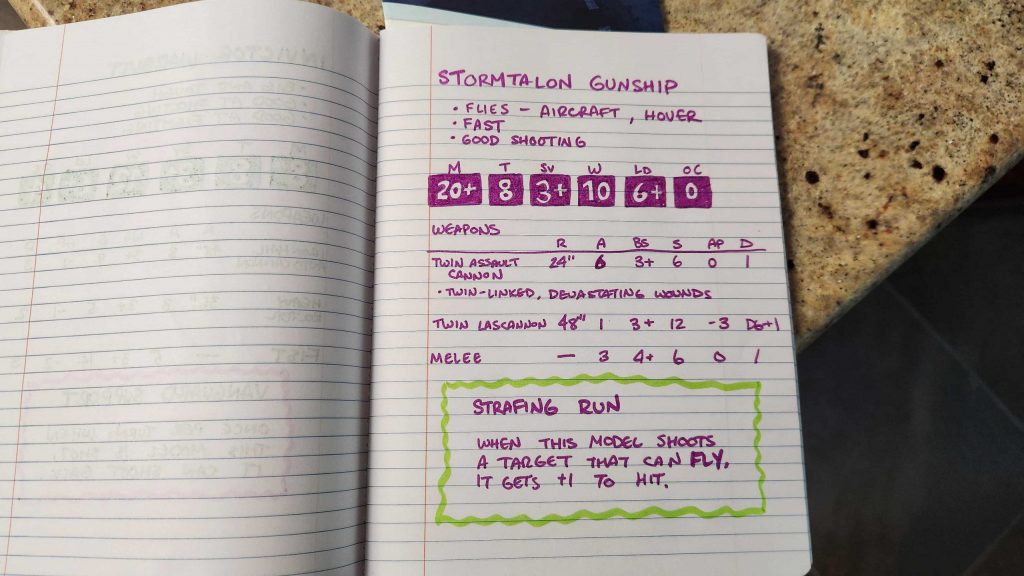 STORMTALON GUNSHIP
• FLIES – AIRCRAFT, HOVER
• FAST
• GOOD SHOOTING
M T SV W LD OC
20+ 8 3+ 10 6+ 0
WEAPONS
R A BS S AP D
TWIN ASSAULT 24" 6 3+ 6 0 1
CANNON
• TWIN-LINKED, DEVASTATING WOUNDS
TWIN LASCANNON 48" 1 3+ 12 -3 D6+1
MELEE — 3 4+ 6 0 1
STRAFING RUN
WHEN THIS MODEL SHOOTS
A TARGET THAT CAN FLY,
IT GETS +1 TO HIT.